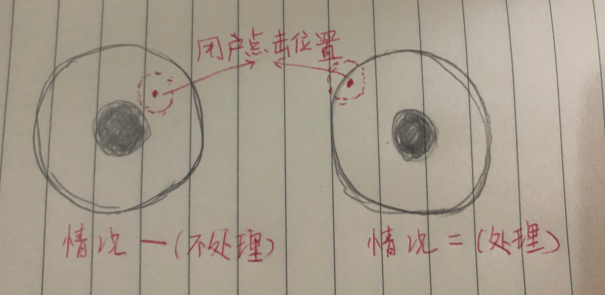 闭户点击位置
情况一(不处理)
情况二(处理)